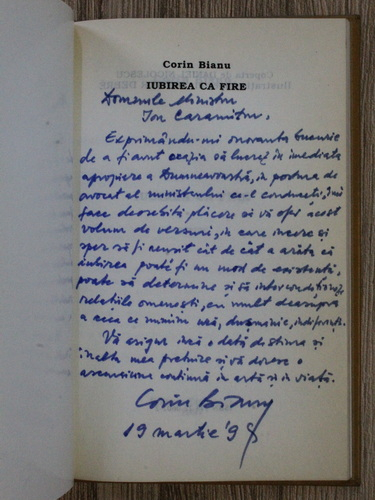 Corin Bianu
IUBIREA CA FIRE
Domnule Ministru
Ion Caramitru,
Exprimându-mi onoranta bucurie
de a fi avut ocazia să lucrez în imediata
apropiere a Dumneavoastră, în postura de
avocat al ministerului ce-l conduceți, îmi
face deosebită plăcere să vă ofer acest
volum de versuri, în care încerc și
sper să fi reușit cât de cât a arăta că
iubirea poate fi un mod de existență,
poate să determine și să intercondiționeze
relațiile omenești, cu mult deasupra
a ceea ce numim ură, dușmănie, indiferență.
Vă asigur încă o dată de stima și
înalta mea prețuire și vă doresc o
ascensiune continuă în artă și în viață.
Corin Bianu
19 martie '98